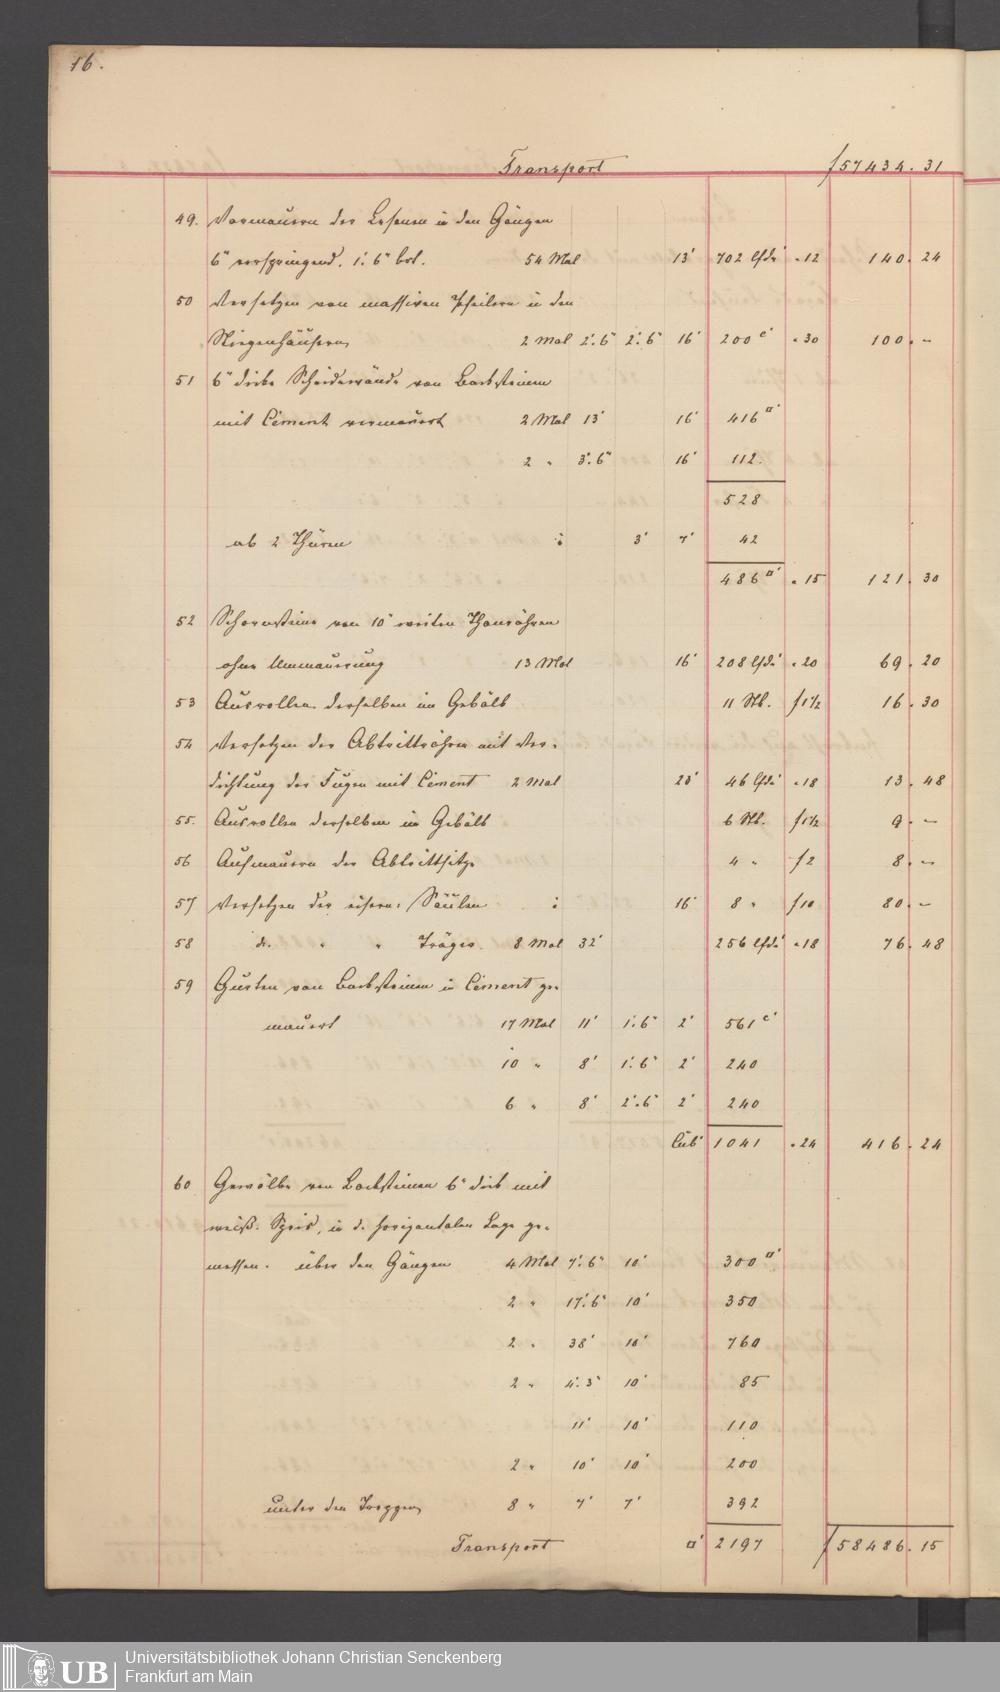 16.
Transport f 57434. 31
49. Vormauern der Lesenen in den Gängen
6" vorspringend. 1'. 6" brt. 54 Mal 13' 702 lfd' " 12 140. 24
50 Versetzen von massiven Pfeilern in den
Stiegenhäusern 2 Mal 2'. 6" 2'. 6" 16' 200 c' " 30 100. –
51 6" dicke Scheidewände von Backsteinen
mit Cement vermauert 2 Mal 13' 16' 416 □'
2 " 3'. 6" 16' 112.
528
ab 2 Thüren 3' 7' 42
486 □' " 15 121. 30
52 Schornsteine von 10" weiten Thonröhren
ohne Ummauerung 13 Mal 16' 208 lfd' " 20 69. 20
53 Ausrollen derselben im Gebälk 11 Stk. f 1½ 16. 30
54 Versetzen der Abtrittröhren mit Ver-
dichtung der Fugen mit Cement 2 Mal 23' 46 lfd' " 18 13. 48
55. Ausrollen derselben im Gebälk 6 Stk. f 1½ 9. –
56 Aufmauern der Abtrittsitze 4 " f 2 8. –
57 Versetzen der eisern: Säulen 16' 8 " f 10 80. –
58 do. " " Träger 8 Mal 32' 256 lfd' " 18 76. 48
59 Gurten von Backsteinen in Cement ge-
mauert 17 Mal 11' 1'. 6" 2' 561 c'
10 " 8' 1'. 6" 2' 240
6 " 8' 2'. 6" 2' 240
Cub' 1041 " 24 416. 24
60 Gewölbe von Backsteinen 6" dick mit
weiß. Speis, in d. horizontalen Lage ge-
messen. über den Gängen 4 Mal 7'. 6" 10' 300 □'
2 " 17'. 6" 10' 350
2 " 38' 10' 760
2 " 4'. 3" 10' 85
11' 10' 110
2 " 10' 10' 200
unter den Treppen 8 " 7' 7' 392
Transport □' 2197 f 58486. 15
UB
Universitätsbibliothek Johann Christian Senckenberg
Frankfurt am Main